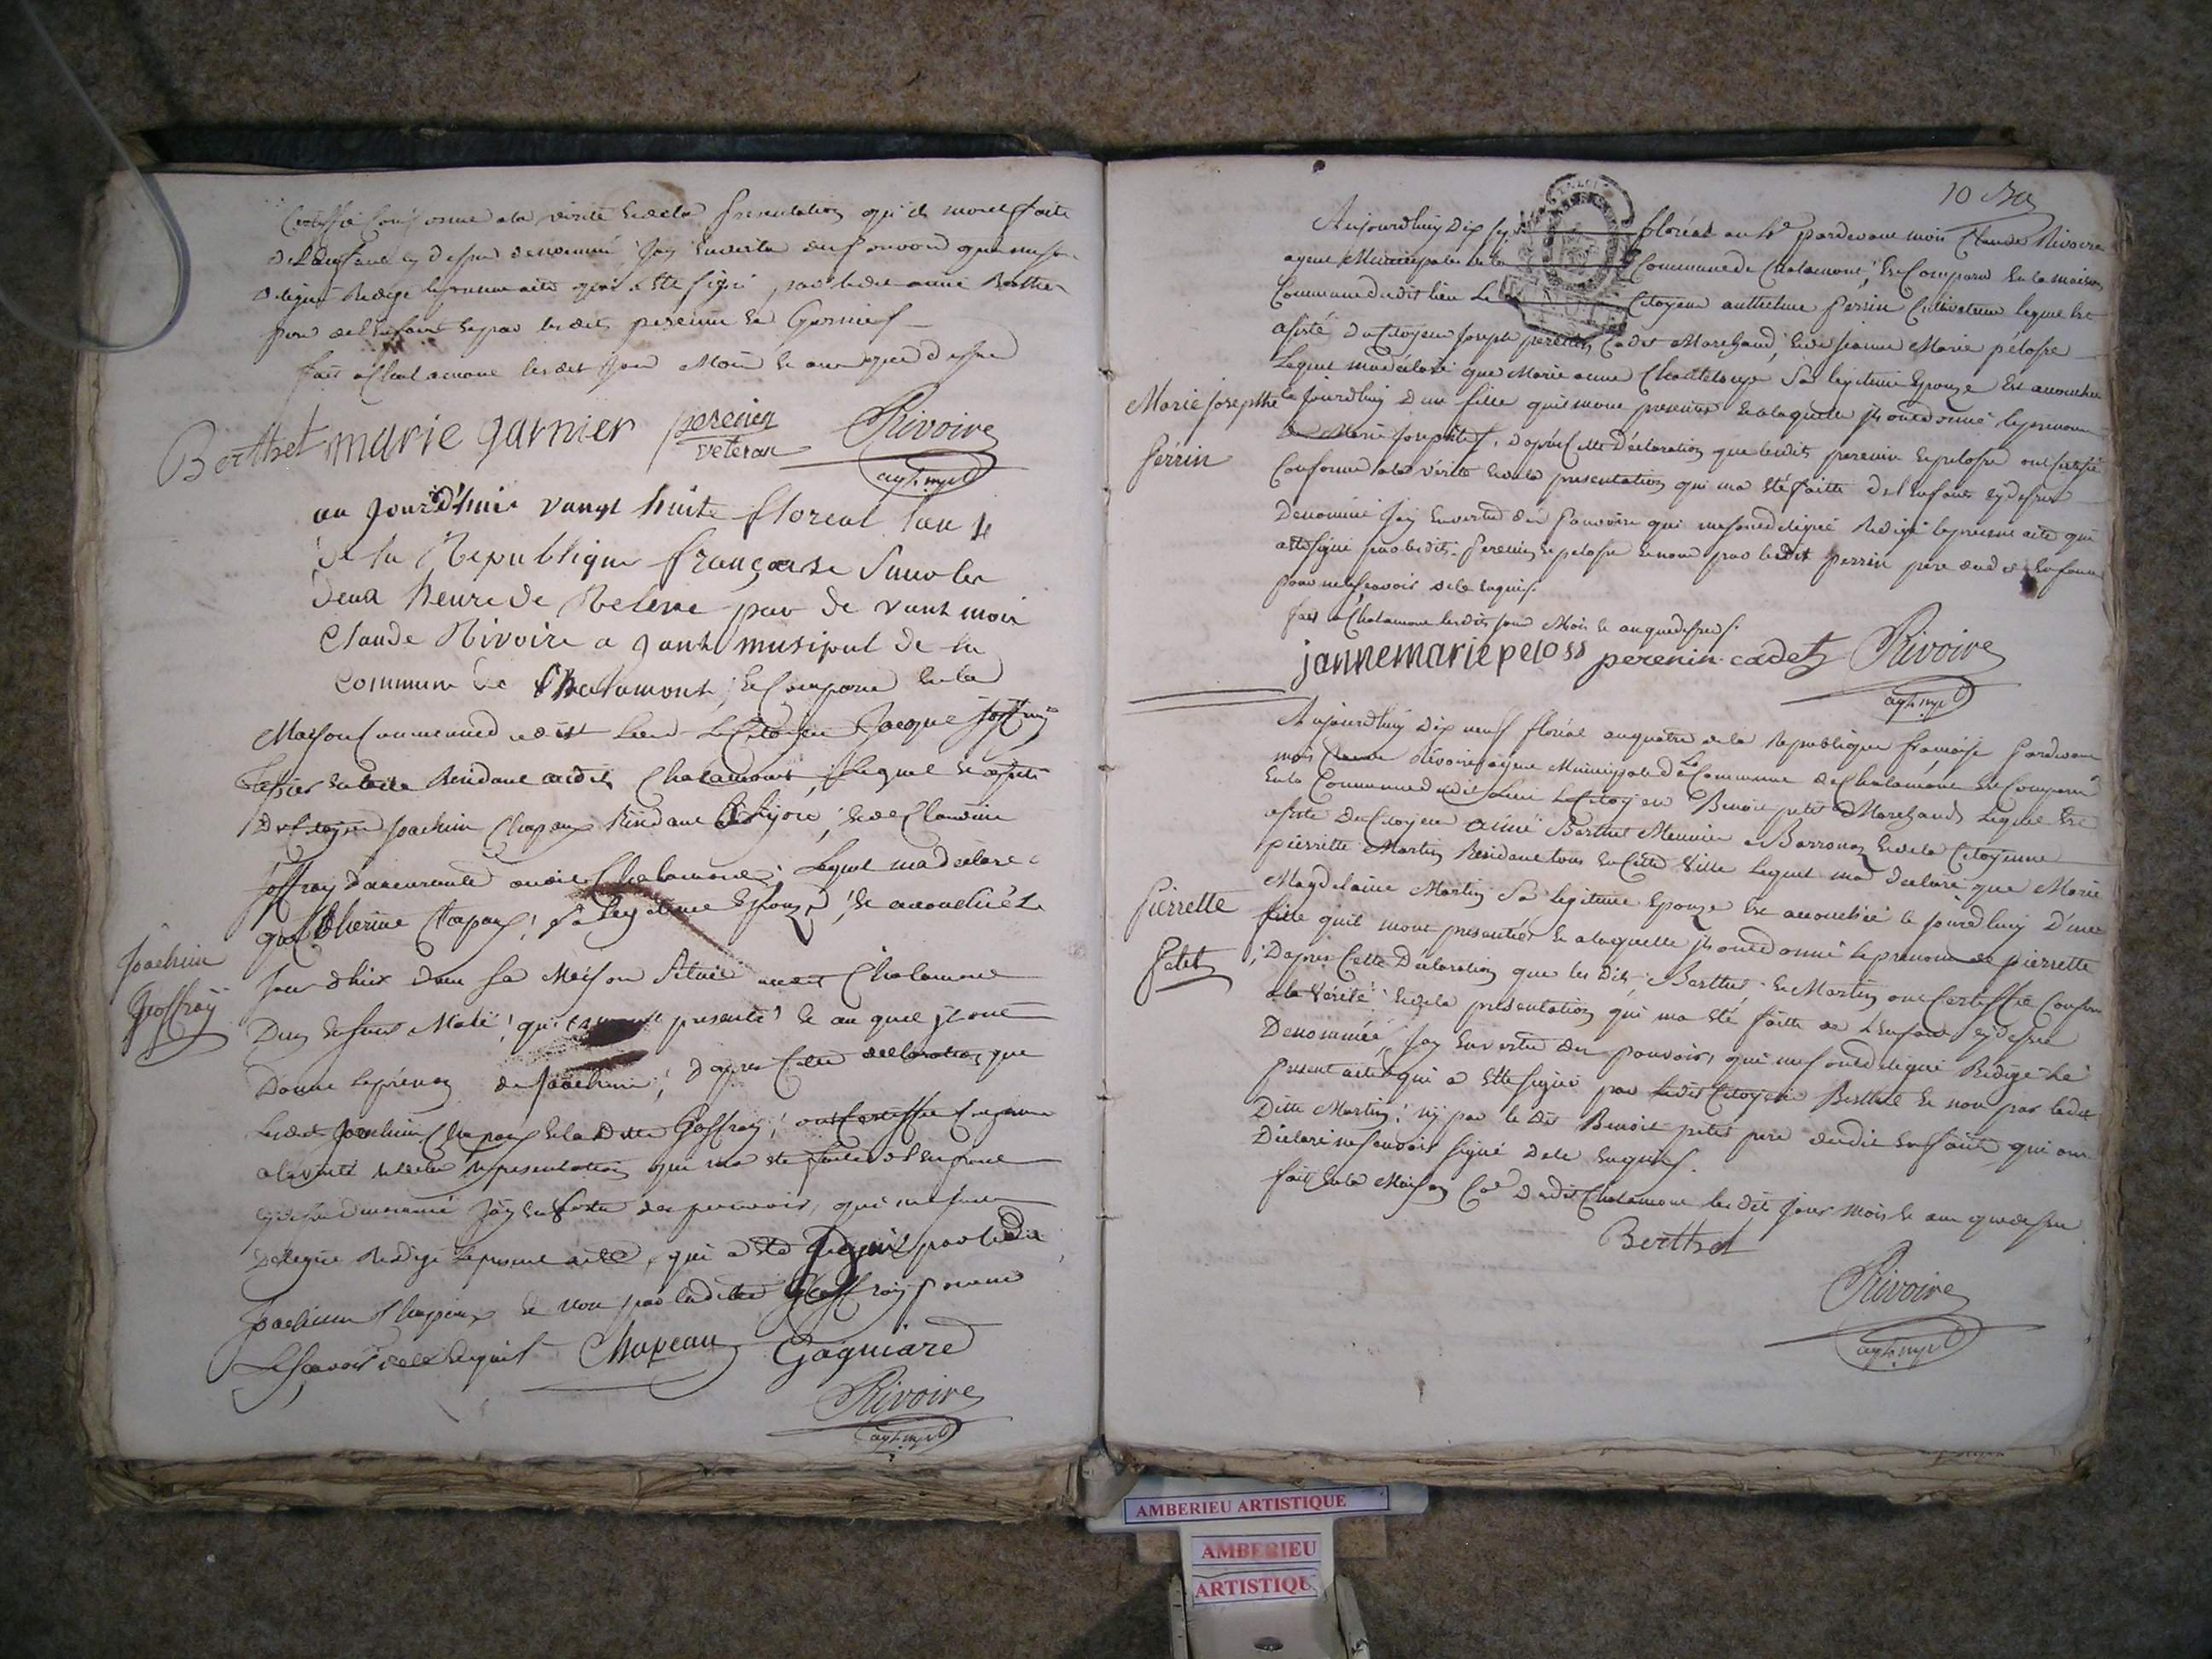 Certiffié Conforme a la vérité et de la presentation qu'ils mont faite
de L'enfant cy dessus denommé Jay En vertu des pouvoirs que me son
delegué Redigé le present acte qui a Etté signé par ledit aimé Berthet
pere de L'enfant et par lesdits perenin et Garnier
fait à Chalamont lesdit Jour Mois et an que dessus
Berthet marie garnier perenin Rivoire
veteran
agt. mpal
au Jourd'huie vungt huite floreal lan 4
de la Republique française Suur les
deux heure de Releve par de vant moi
Claude Rivoire a gant musipal de la
Commune de Chalamont, Est Comparu En la
Maison Commune dudit Lieu Le Citoyen Jacque Joffray
Tessier En toile Residant audit Chalamont, Lequel Est assisté
du Citoyen Joachim Chapeau Residant , et de Claudine
Joffray demeurante audit Chalamont, Lequel ma declaré
que Chapeau, Sa Legitime Epouze, Est accouchée Le
Joachim
Geoffray
Jour d'huy dans Sa Maison Situé audit Chalamont
D'un Enfant Male, presenté et au quel ils ont
Donné Le prenom de Joachim, d'apres Cette declaration que
Lesdits Joachim Chapeau et la Ditte Goffray, ont Certiffié Conforme
a la vérité et de la presentation qui ma été faite de L'enfant
cy dessus denommé Jay En vertu des pouvoirs, qui me sont
delegué Redigé Le present acte, qui a été Signé par ledit
Joachim Chapeau et non par la ditte Geoffray pour ne
Le Scavoir de ce Enquis Chapeau Gagniare
Rivoire
agt. mpal
10
Aujourdhuy Dix floréal an 4e pardevant moi Claude Rivoire
agent Municipale de la Commune de Chalamont, Est Comparu En la maison
Commune dudit lieu Le Citoyen anthelme Perrin Cultivateur lequel Est
assisté du Citoyen Joseph perenin Cadet Marchand, et de Jeanne Marie pélosse
Lequel ma déclaré que Marie anne Chanteloup Sa legitime Epouze Est accouchée
Marie Josepthe
Perrin
le Jourdhuy d'une fille quil mont presenté et a laquelle ils ont donné le prenom
de Marie Josepthe, d'après Cette Déclaration que lesdits perenin et pelosse ont certifié
Conforme a la vérité et de la presentation qui ma été faitte de L'enfant cy dessus
Denommé Jay En vertu des Pouvoirs qui me sont delegué Redigé le present acte qui
a été signé par lesdits Perenin et pelosse et non par ledit perrin père dud. Enfant
pour ne scavoir de ce enquis.
fait à Chalamont lesdits Jour Mois et an que dessus.
jannemarie peloss perenin cadet Rivoire
agt. mpal
Aujourdhuy Dix neuf floréal an quatre de la Republique française Pardevant
moi Claude Rivoire agent Municipale de La Commune de Chalamont Est Comparu
En la Commune dudit Lieu Le Citoyen Benoit petet Marchand Lequel Est
assisté du Citoyen aimé Berthet Meunier a Barronas et de la Citoyenne
pierrette Martin Residant tous En Cette Ville Lequel ma declaré que Marie
Pierrette
Petet
Magdelaine Martin Sa Legitime Epouze Est accouchée le Jourdhuy D'une
fille quil mont presentée et a laquelle ils ont donné le prenom de pierrette
, D'apres Cette Déclaration que les Dits Berthet et Martin ont Certiffié Conforme
a la Vérité et de la présentation qui ma été faitte de L'enfant cy dessus
Denommée, Jay En vertu des pouvoirs, qui me sont delegué Redigé Le
present acte qui a Etté signé par ledit Citoyen Berthet et non par ladit
Ditte Martin, ny par le Dit Benoit petet pere dudit Enfant, qui ont
Déclaré ne Scavoir Signé de ce Enquis.
fait En la Maison Coe. Dudit Chalamont les dits Jour Mois et an que dessus
Berthet
Rivoire
agt. mpal
AMBERIEU ARTISTIQUE
AMBERIEU
ARTISTIQU